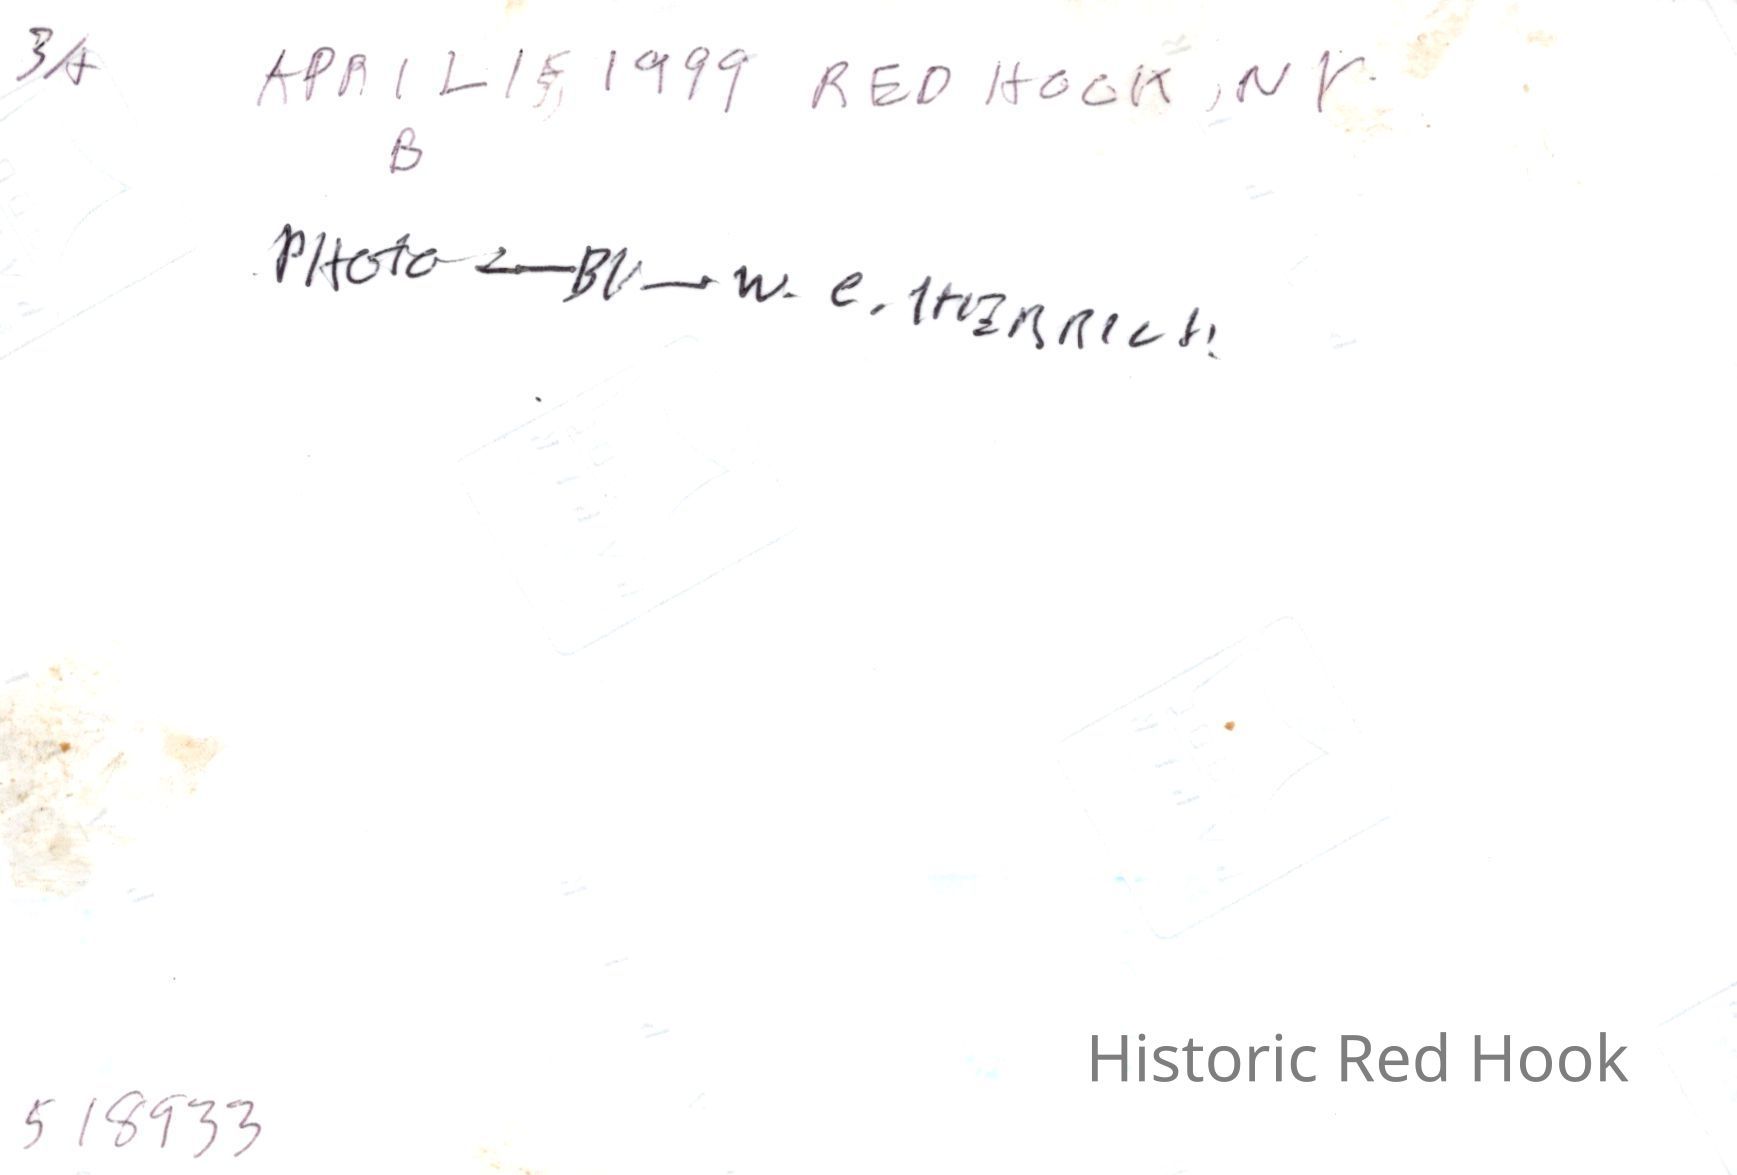 3A APRIL 15, 1999 RED HOOK, NY.
B
PHOTO — BY — W. E. HERRICH.
Historic Red Hook
518933